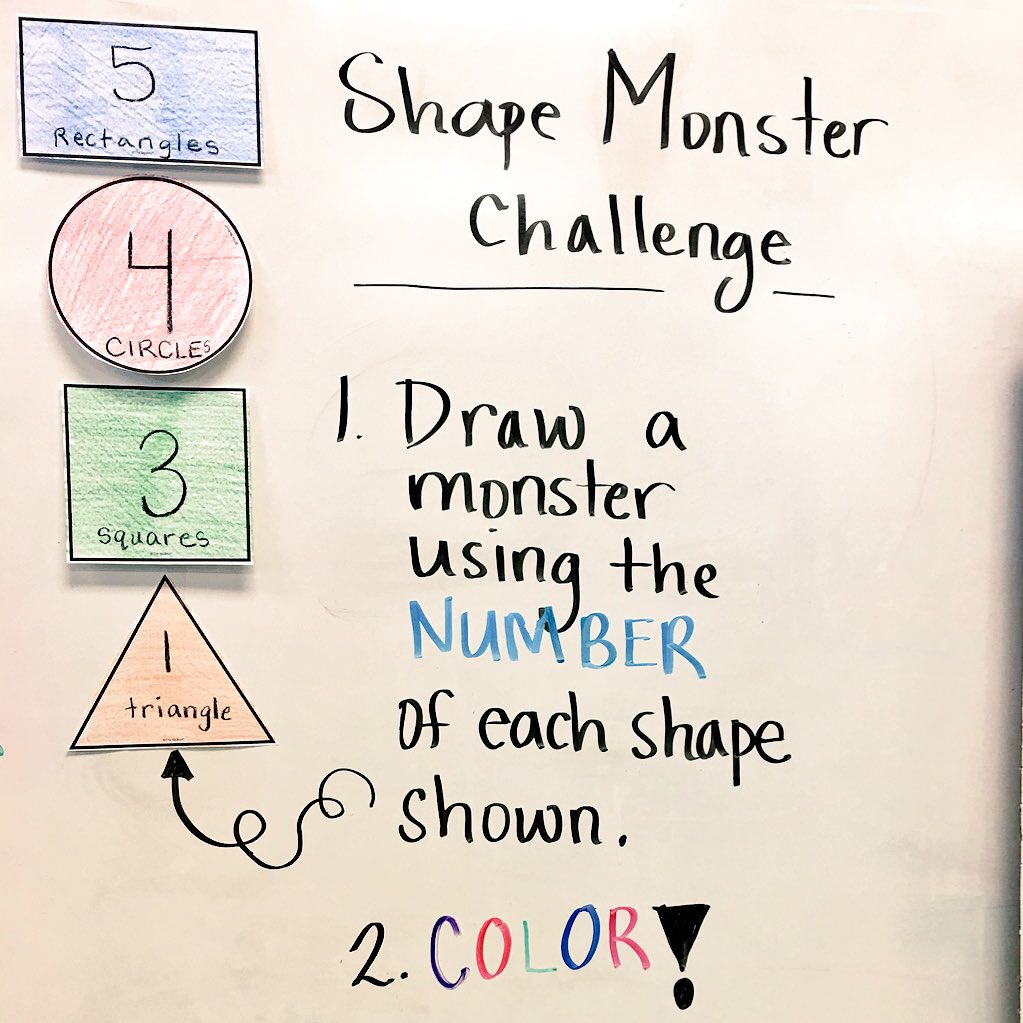 5
Rectangles
4
CIRCLES
3
squares
1
triangle
Shape Monster
Challenge
1. Draw a
monster
using the
NUMBER
of each shape
shown.
2. COLOR!